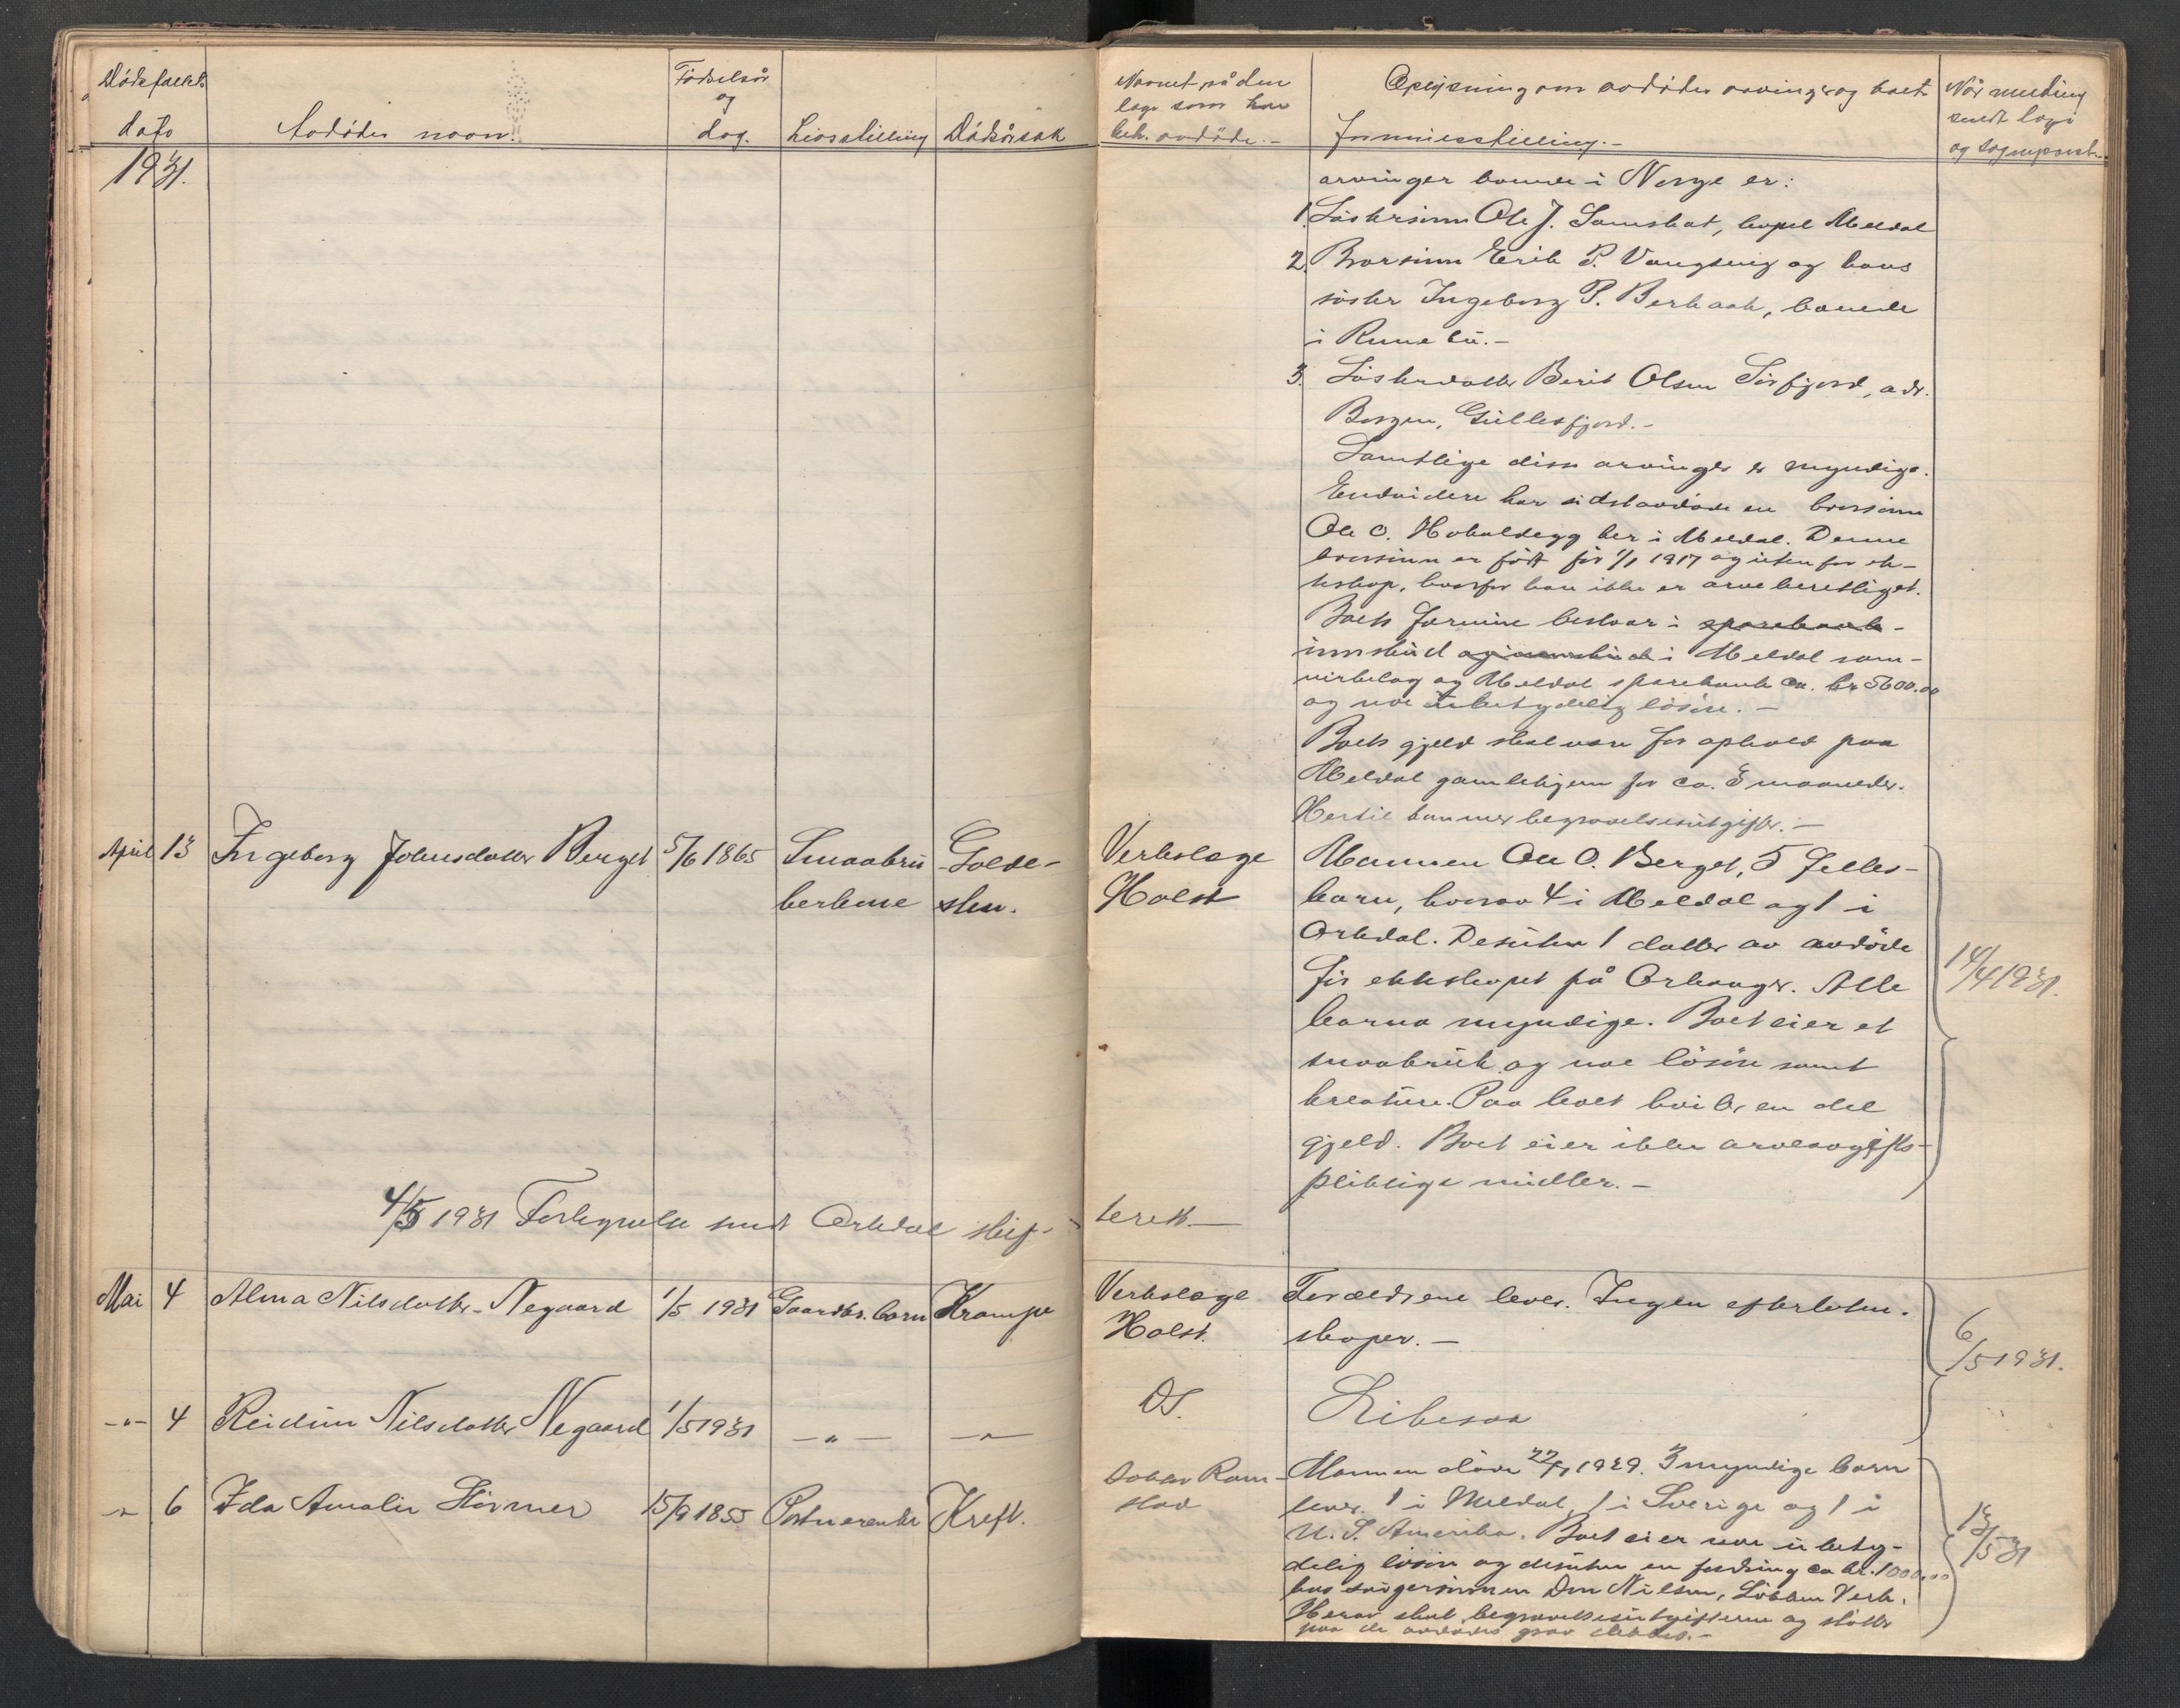 Dödsfallets
dato
Avdödes navn.
Födselsår
og
dag.
Livsstilling
Dödsårsak
Navnet på den
læge som har
beh. avdöde.-
Oplysning om avdödes arvinger og boets
formuesstilling.-
Når melding
sendt
og sogneprest.
1931.
arvinger boende i Norge er:
1. Söstersönn Ole J. Lamshat, bopel Meldal
2. Brorsönn Erik P. Vangsnes og hans
söster Ingeborg P. Berhaak, boende
i Rennebu.-
3. Sösterdatter Berit Olsen Sörfjord, adr.
Borgen, Gullesfjord.-
Samtlige disse arvinger er myndige.
Endvidere har sidstavdöde en brorsönn
Ole O. Hoboldegg her i Meldal. Denne
brorsönn er födt för 1/1 1917 og uten for ek-
teskap, hvorfor han ikke er arveberettiget.
Boets formue bestaar i sparebank-
innskud og innskud i Meldal sam-
virkelag og Meldal sparebank ca. kr 5600.00
og noe ubetydelig lösöre.-
Boets gjeld skal være for ophold paa
Meldal gamlehjem for ca. 3 maaneder.
Hertil kommer begravelsesutgifter.-
April 13 Ingeborg Johnsdatter Berget 5/6 1865 Smaabru-
kerkone
Galde-
sten.
Verkslæge
Holst
Mannen Ole O. Berget, 5 felles-
barn, hvorav 4 i Meldal og 1 i
Orkdal. Desuten 1 datter av avdöde
för ekteskapet på Orkanger. Alle
barna myndige. Boet eier et
smaabruk og noe lösöre samt
kreaturer. Paa boet hviler en del
gjeld. Boet eier ikke arveavgifts-
pliktige midler.-
14/4 1931.
4/5 1931 Forlegnelse sendt Orkdal skif-
terett.-
Mai 4 Alma Nilsdatter Negaard 1/5 1931 Gaardbr. barn Krampe
Verkslæge
Holst.
Foreldrene lever. Ingen efterlaten-
skaper.-
6/5 1931.
-"- 4 Reidun Nilsdatter Negaard 1/5 1931 -"- -"-
DS.
Likesaa
-"- 6 Ida Amalie Störmer 15/9 1855 Postmesterenke Kreft.
Doktor Ram-
stad
Mannen döde 22/7 1929. 3 myndige barn
lever. 1 i Meldal, 1 i Sverige og 1 i
U. S. Amerika. Boet eier noe ubety-
delig lösöre og desuten en fordring ca kr. 1000.00
hos svigersönnen Nilsen, Lökken Verk.
Herav skal begravelsesutgifterne og stötte
paa de avdödes grav dekkes.-
13/5 31